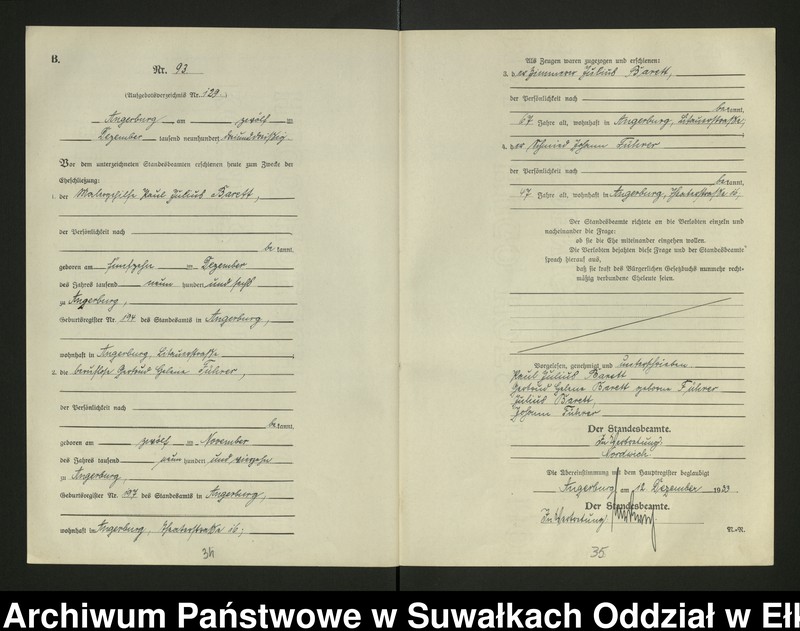 B.
Nr. 93
(Aufgebotsverzeichnis Nr. 129.)
Angerburg am zwölf ten
Dezember tausend neunhundert dreiundzwanzig
Vor dem unterzeichneten Standesbeamten erschienen heute zum Zwecke der
Eheschließung:
1. der Malergehilfe Paul Julius Barett,
der Persönlichkeit nach
be kannt,
geboren am fünfzehn ten Dezember
des Jahres tausend neun hundert und sechs
zu Angerburg,
Geburtsregister Nr. 194 des Standesamts in Angerburg,
wohnhaft in Angerburg, Litauerstraße
2. die berufslose Gertrud Helene Führer,
der Persönlichkeit nach
be kannt,
geboren am zwölf ten November
des Jahres tausend neun hundert und vierzehn
zu Angerburg,
Geburtsregister Nr. 197 des Standesamts in Angerburg,
wohnhaft in Angerburg, Theaterstraße
34
Als Zeugen waren zugezogen und erschienen:
3. der Zimmerer Julius Barett,
der Persönlichkeit nach
be kannt,
67 Jahre alt, wohnhaft in Angerburg, Litauerstraße;
4. der Schmied Johann Führer
der Persönlichkeit nach
be kannt,
47 Jahre alt, wohnhaft in Angerburg, Theaterstraße
Der Standesbeamte richtete an die Verlobten einzeln und
nacheinander die Frage:
ob sie die Ehe miteinander eingehen wollen.
Die Verlobten bejahten diese Frage und der Standesbeamte
sprach hierauf aus,
daß sie kraft des Bürgerlichen Gesetzbuchs nunmehr recht-
mäßig verbundene Eheleute seien.
Vorgelesen, genehmigt und unterschrieben
Paul Julius Barett
Gertrud Helene Barett geborene Führer
Julius Barett,
Johann Führer
Der Standesbeamte.
In Vertretung
Nordwich
Die Übereinstimmung mit dem Hauptregister beglaubigt
Angerburg, am 12. Dezember 1933
Der Standesbeamte.
In Vertretung
35
Archiwum Państwowe w Suwałkach Oddział w Ełk